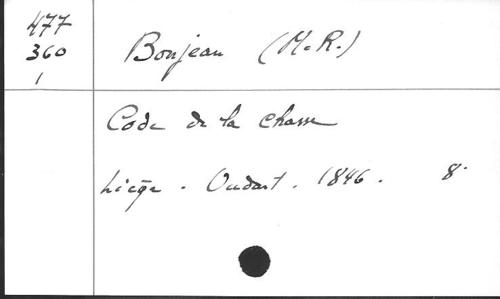 477
360
1
Bonjean (M.R.)
Code de la chasse
Liège. Oudart. 1846. 8°